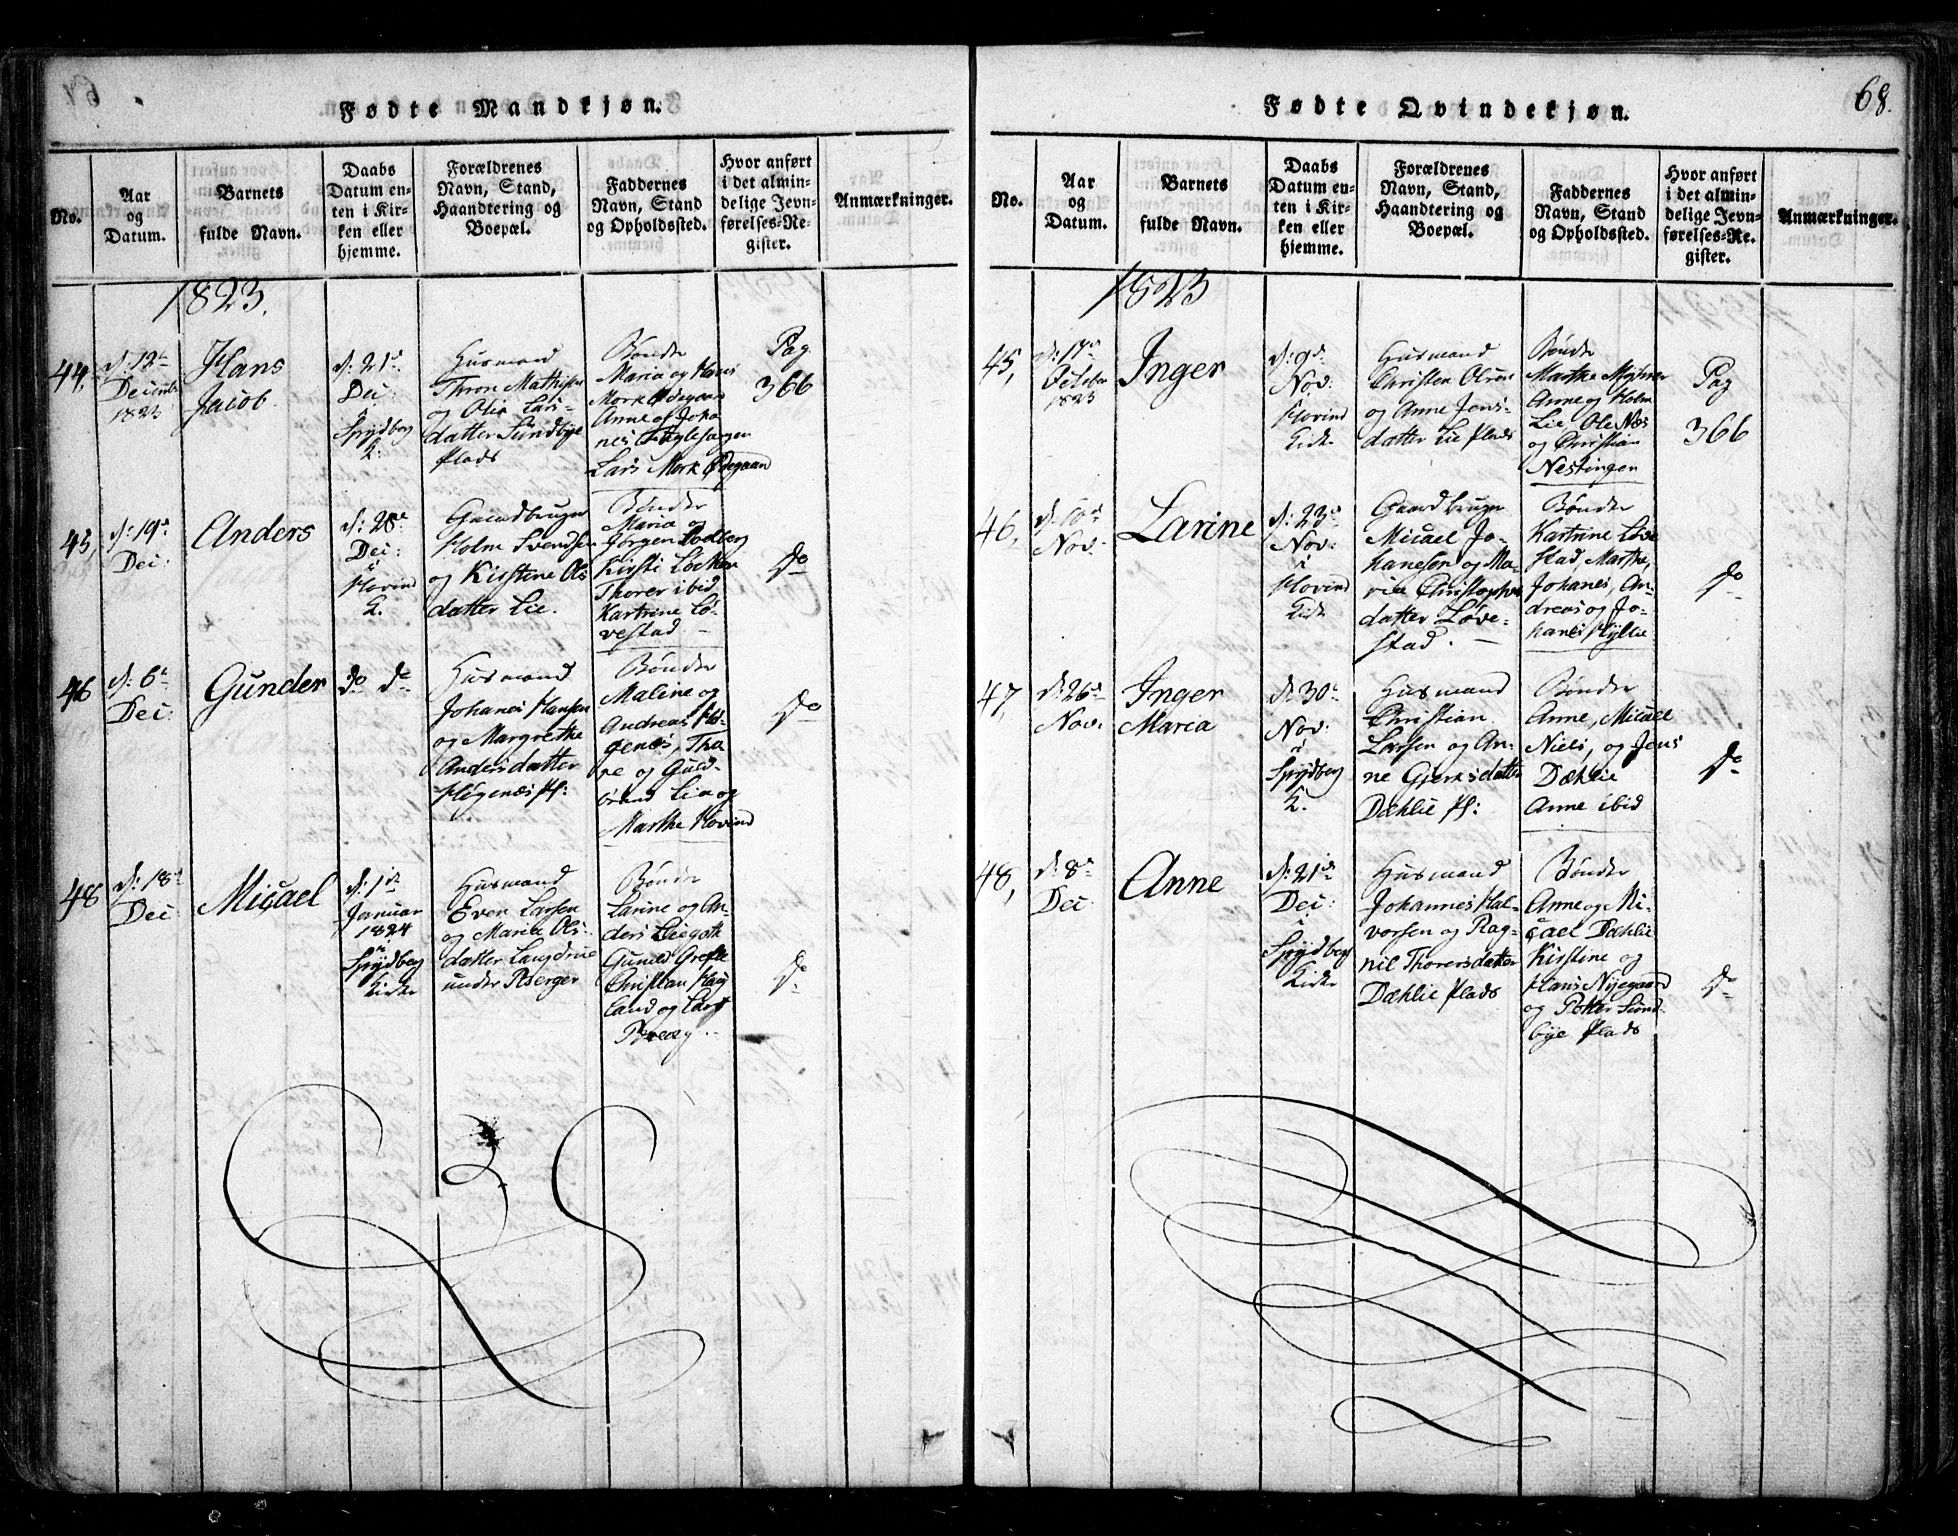 68.
Fødte Mandkjøn.
No.
Aar
og
Datum.
Barnets
fulde Navn.
Daabs
Datum en-
ten i Kir-
ken eller
hjemme.
Forældrenes
Navn, Stand,
Haandtering og
Boepæl.
Faddernes
Navn, Stand
og Opholdssted.
Hvor anført
i det almin-
delige Jevn-
førelses-Re-
gister.
Anmærkninger.
1823.
44,
d: 12
Decemb
1823
Hans
Jacob
d. 21
Dec:
Spydberg
K:
Husmand
Thron Mathisen
og Olia Lars-
datter Sundbye
Plads
Bønder
Maria og Hans
Mork Ødegaard
Anne og Joha
nes Fuglesangen
Lars Mork Ødegaard
Pag
366
45,
d: 19
Dec:
Anders
d: 28
Dec:
i
Hovind
K.
Gaardbruger
Holm Svendsen
og Kirstine Ols
datter Lie.
Bønder
Maria og
Jørgen
Kirsti Løken
Thorer ibid
Kartrine Lø-
vestad
do
46
d: 6
Dec:
Gunder
do do
Husmand
Johanes Hansen
og Margrethe
Andersdatter
Høgenæs Pl:
Bønder
Maline og
Andreas Hø-
genæs, Tho
re og Guld-
brand Lie og
Marthe Hovind
do
48
d: 18
Dec:
Micael
d: 1
Januar
1824
i
Spydberg
Kirke
Husmand
Even Larsen
og Maria Ols-
datter Langdrue
under Berger
Bønder
Larine og An-
ders Liegoth
Guneld Grefle
Christian Haug
land og Lars
do
Fødte Qvindekjøn.
No.
Aar
og
Datum.
Barnets
fulde Navn.
Daabs
Datum en-
ten i Kir-
ken eller
hjemme.
Forældrenes
Navn, Stand,
Haandtering og
Boepæl.
Faddernes
Navn, Stand
og Opholdssted.
Hvor anført
i det almin-
delige Jevn-
førelses-Re-
gister.
Anmærkninger.
1823
45,
d: 17
October
1823
Inger
d. 9
Nov:
i
Hovind
Kirke
Husmand
Christen Olsen
og Anne Jens-
datter Lie Plads
Bønder
Marthe
Anne og Holm
Lie, Ole Næs
og Christian
Nestingen
Pag
366
46,
d. 10
Nov:
Larine
d: 23
Nov:
i
Hovind
Kirke
Gaardbruger
Micael Jo-
hanesen og Ma-
ria Christophers
datter Løve-
stad.
Bønder
Kartrine Løve
stad, Marthe,
Johanes, An-
dreas og Jo-
hanes Hyllie
do
47,
d: 26
Nov:
Inger
Maria
d: 30
Nov:
i
Spydberg
K.
Husmand
Christian
Larsen og An-
ne Gjersdatter
Dæhlie Pl:
Bønder
Anne, Micael
Niels, og Jens
Dæhlie
Anne ibid
do
48,
d: 8
Dec:
Anne
d: 21
Dec:
i
Spydberg
Kirke
Husmand
Johannes Hal-
vorsen og Rag-
nil Thorersdatter
Dæhlie Plads
Bønder
Anne og Mi-
cael Dæhlie
Kirstine og
Hans Nyegaard
og Petter Sund-
bye Plads
do